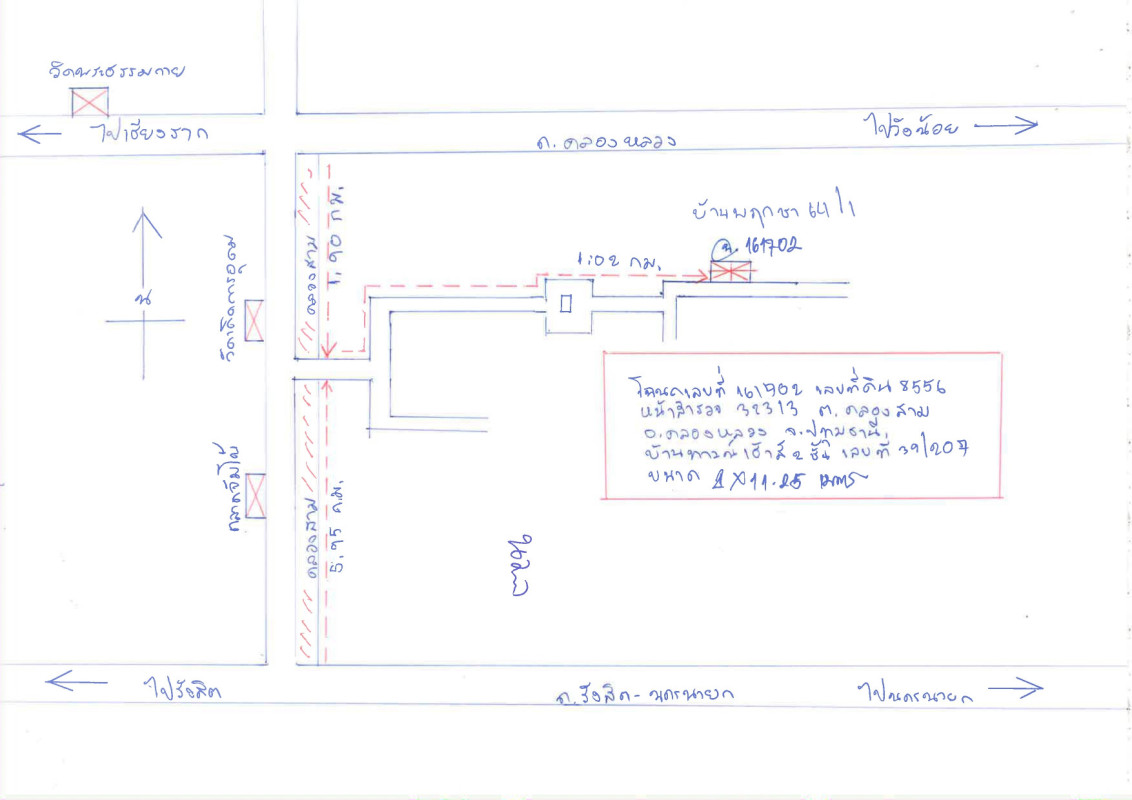 วัดพระธรรมกาย
ไปเชียงราก
ถ.คลองหลวง
ไปวังน้อย
บ้านพฤกษา 64/1
ฉ. 161702
1.02 กม.
1.90 กม.
คลองสาม
น
โฉนดเลขที่ 161702 เลขที่ดิน 8556
หน้าสำรวจ 32313 ต.คลองสาม
อ.คลองหลวง จ.ปทุมธานี
บ้านทาวน์เฮ้าส์ 2 ชั้น เลขที่ 39/207
ขนาด 4X11.25 เมตร
คลองสาม
5.95 ก.ม.
ไปรังสิต
ถ.รังสิต-นครนายก
ไปนครนายก